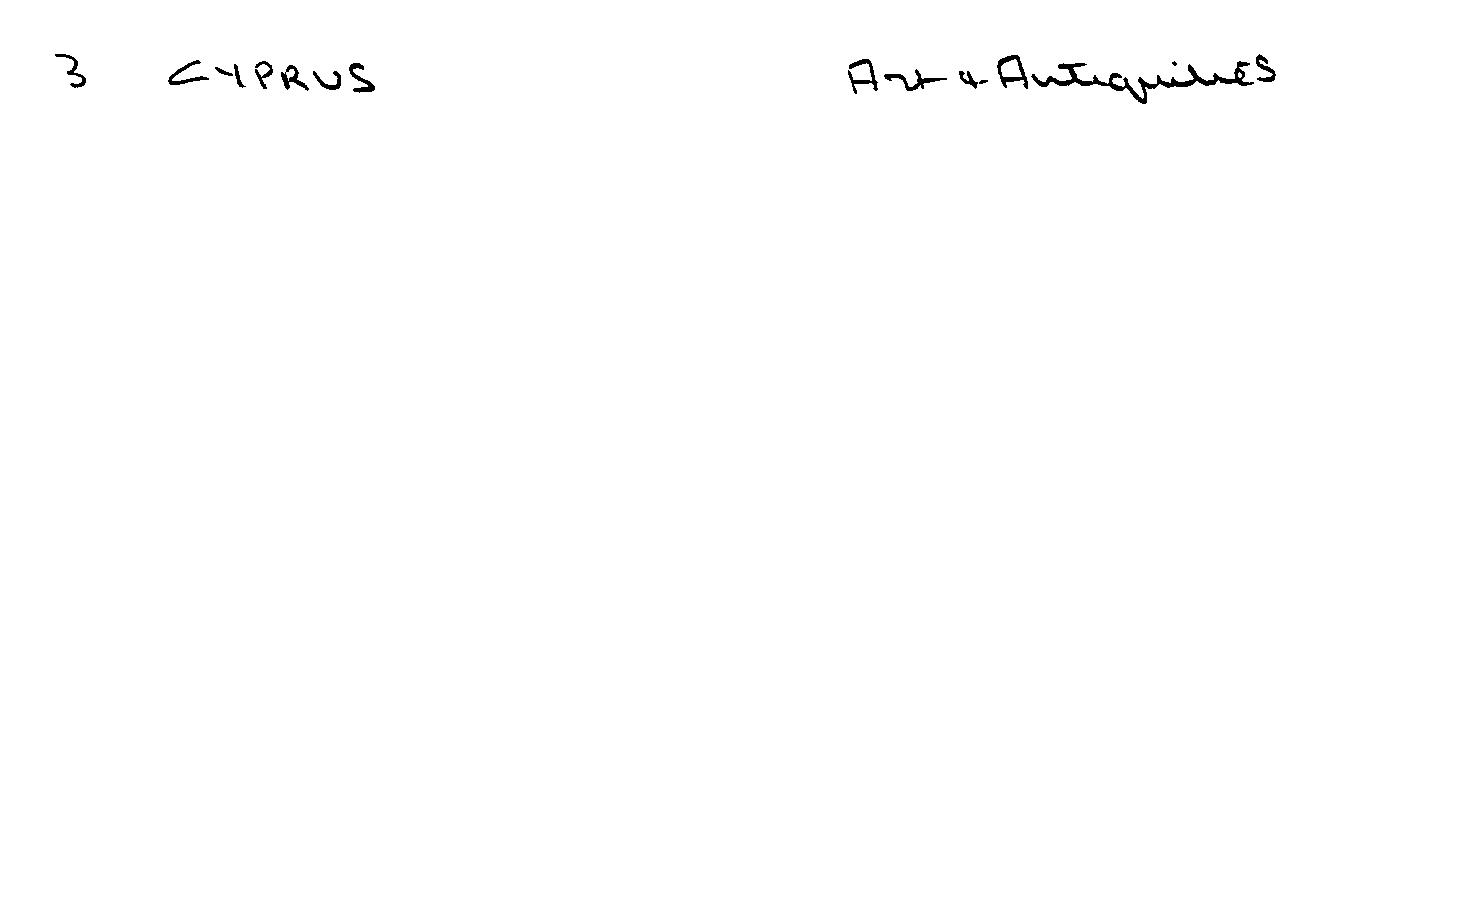 3 CYPRUS Art & Antiquities